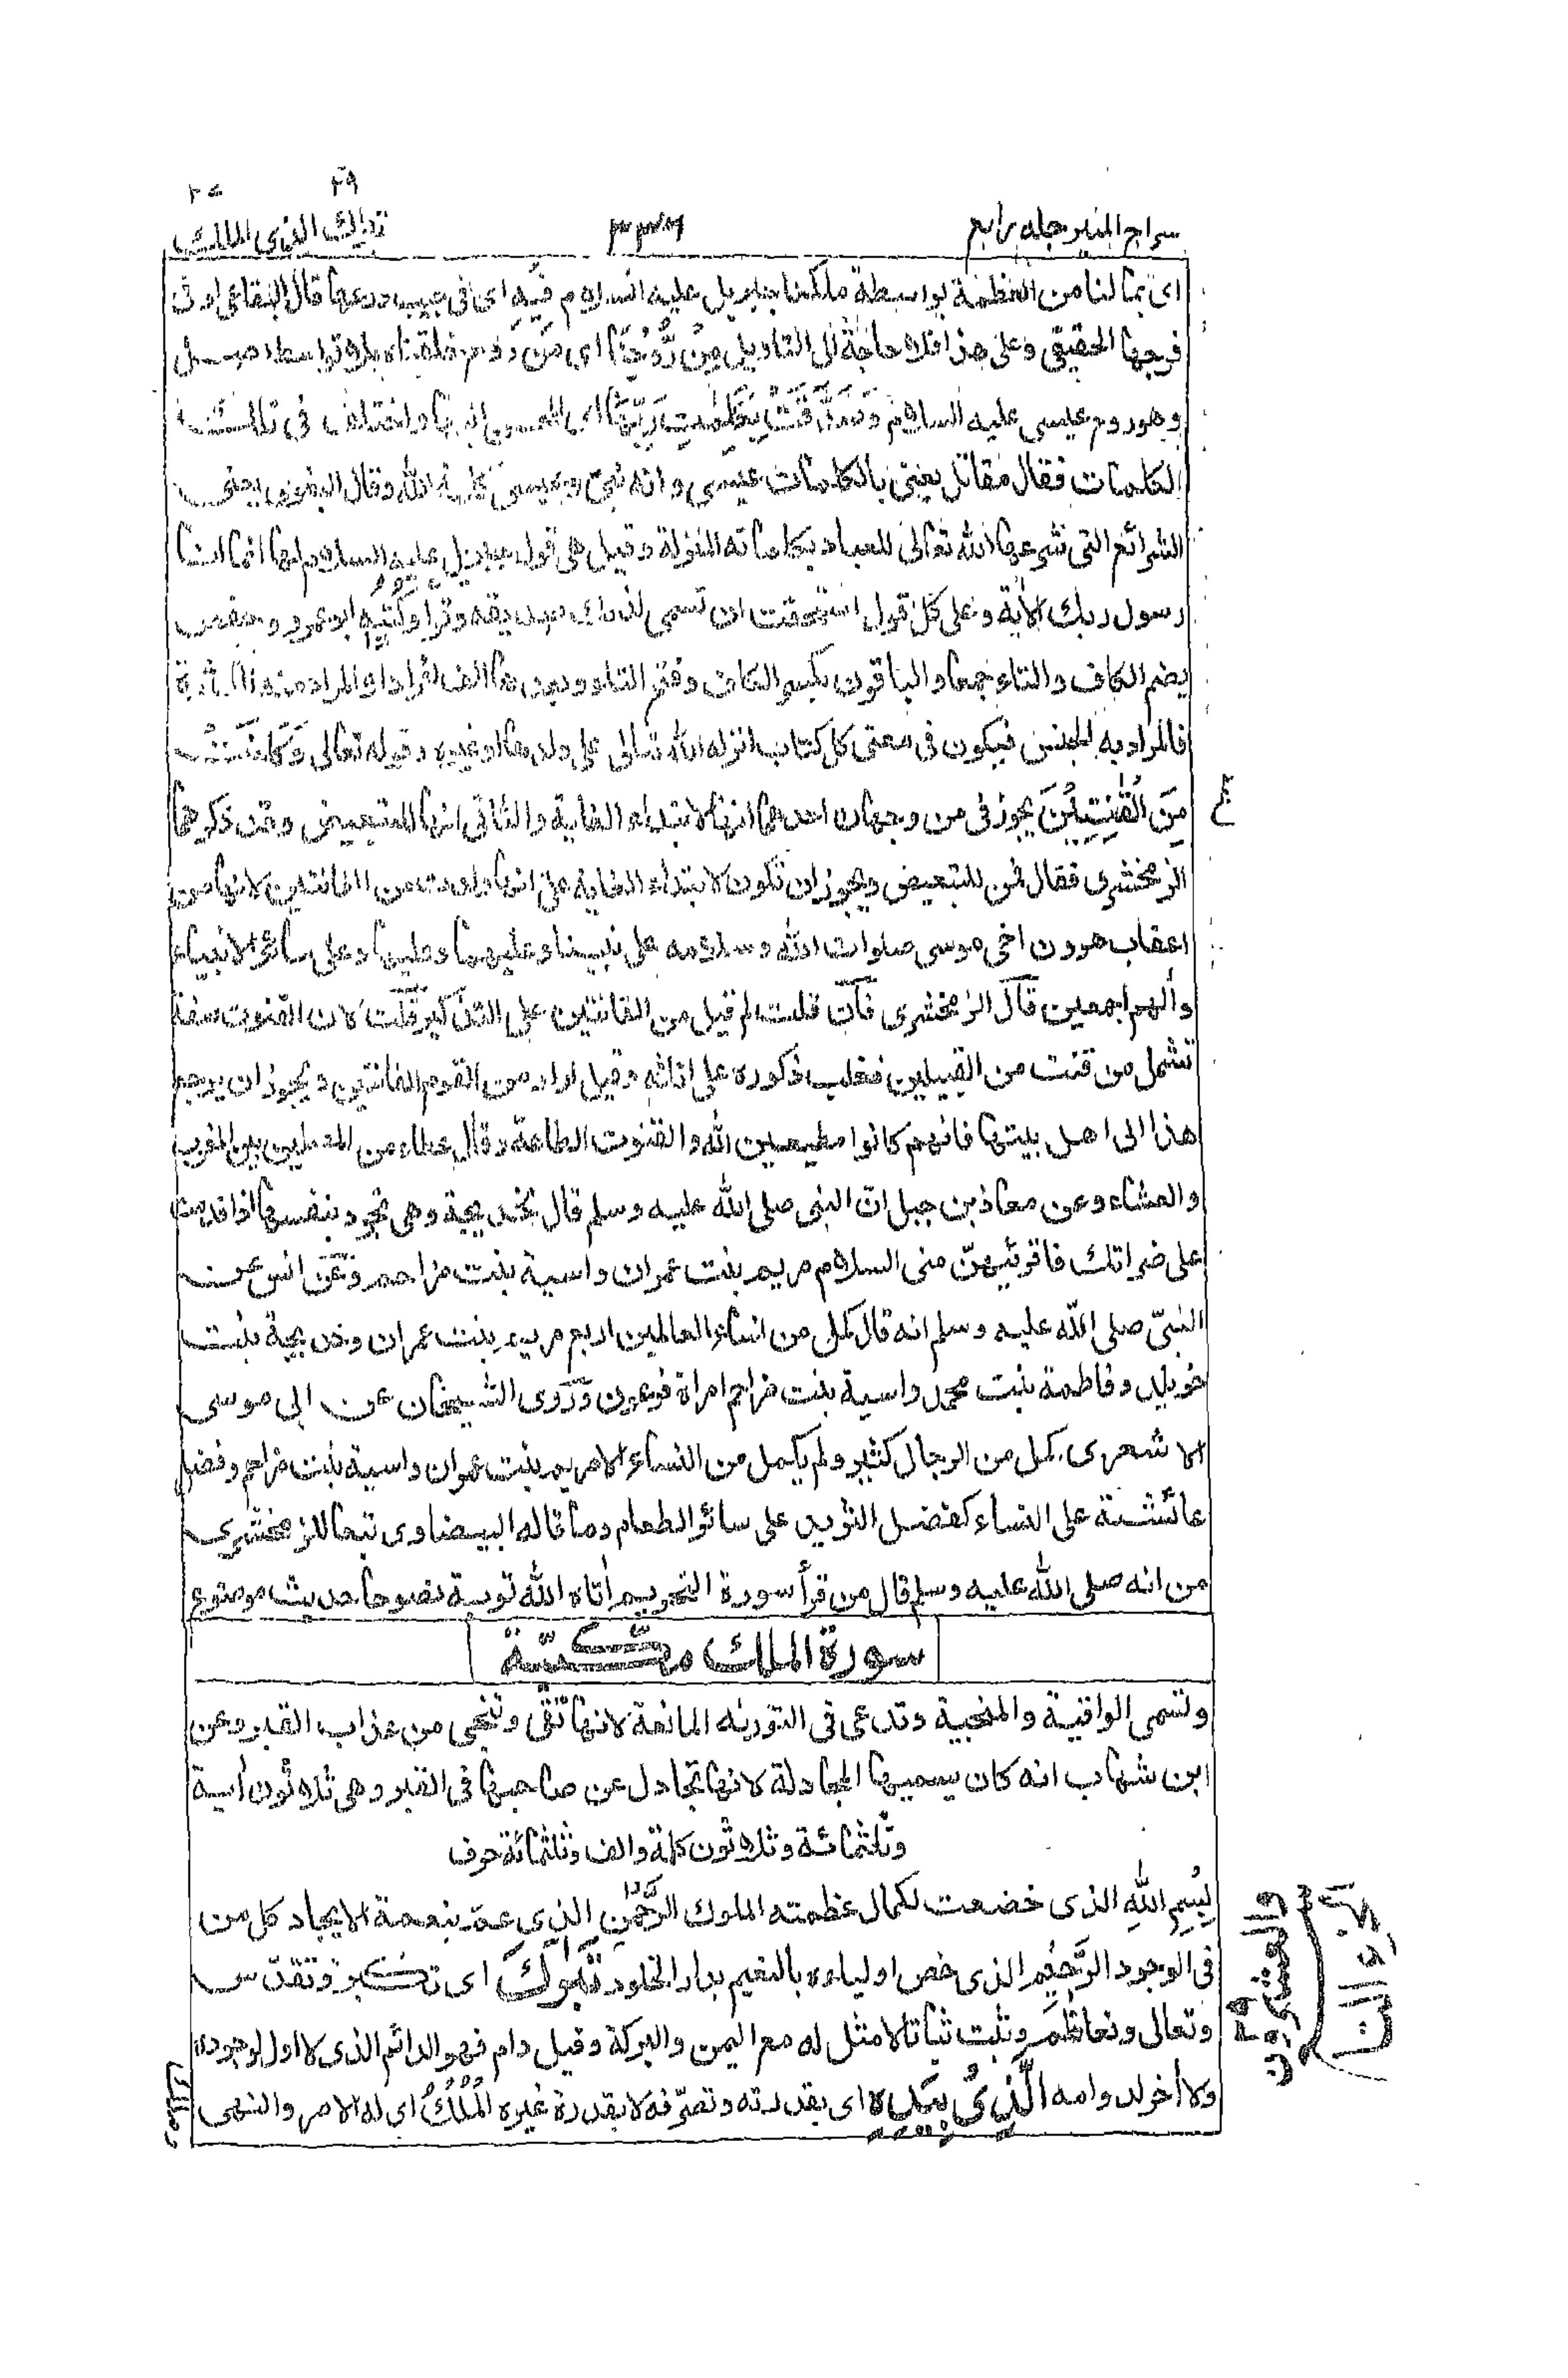 سراج المنير جلد رابع ٣٣٦ تبارك الذى الملك
٢٩
اى بما لنا من العظمة بواسطة ملكنا جبريل عليه السلام فيه اى فى جيب درعها قال البقاعى او فى
فرجها الحقيقى وعلى هذا فلا حاجة الى التاويل مِنْ رُّوْحِنَا اى من روح خلقناه بلا توسط
وهو روح عيسى عليه السلام وَصَدَّقَتْ بِكَلِمٰتِ رَبِّهَا اى المحسن اليها واختلف فى تلك
الكلمات فقال مقاتل يعنى بالكلمات عيسى وانه نبى وعيسى كلمة الله وقال البغوى يعنى
الشرائع التى شرعها الله تعالى للعباد بكلماته المنزلة وقيل هى قول جبريل عليه السلام لها انما انا
رسول ربك الاٰية وعلى كل قول استحقت ان تسمى لذلك صديقة وقرأ وَكُتُبِهٖ ابو عمرو وحفص
بضم الكاف والتاء جمعا والباقون بكسر الكاف وفتح التاء وبعدها الف افرادا والمراد منه الكثرة
فالمراد به الجنس فيكون فى معنى كل كتاب انزله الله تعالى على ولدها او غيره وقوله تعالى وَكَانَتْ
مِنَ الْقٰنِتِيْنَ يجوز فى من وجهان احدهما انها لابتداء الغاية والثانى انها للتبعيض وقد ذكرهما
الزمخشرى فقال فمن للتبعيض ويجوز ان تكون لابتداء الغاية على انها ولدت من القانتين لانها من
اعقاب هرون اخى موسى صلوات الله وسلامه على نبينا وعليهما وعليها وعلى سائر الانبياء
واٰلهم اجمعين قال الزمخشرى فان قلت لم قيل من القانتين على التذكير قلت لان القنوت صفة
تشمل من قنت من القبيلين فغلب ذكوره على اناثه وقيل اراد من القوم القانتين ويجوز ان يرجع
هذا الى اهل بيتها فانهم كانوا مطيعين الله والقنوت الطاعة وقال عطاء من المصلين بين المغرب
والعشاء وعن معاذ بن جبل انّ النبى صلى الله عليه وسلم قال لخديجة وهى تجود بنفسها اذا قدمت
على ضراتك فاقرئيهنّ منى السلام مريم بنت عمران واسية بنت مزاحم وعن انس عن
النبىّ صلى الله عليه وسلم انه قال كمل من نساء العالمين اربع مريم بنت عمران وخديجة بنت
خويلد وفاطمة بنت محمد واسية بنت مزاحم امراة فرعون وروى الشيخان عن ابى موسى
الاشعرى كمل من الرجال كثير ولم يكمل من النساء الا مريم بنت عمران واسية بنت مزاحم وفضل
عائشة على النساء كفضل الثريد على سائر الطعام وما قاله البيضاوى تبعا للزمخشرى
من انه صلى الله عليه وسلم قال من قرأ سورة التحريم اٰتاه الله توبة نصوحا حديث موضوع
سورة الملك مكّيّة
وتسمى الواقية والمنجية وتدعى فى التورٰىه المانعة لانها تقى وتنجى من عذاب القبر وعن
ابن شهاب انه كان يسميها المجادلة لانها تجادل عن صاحبها فى القبر وهى ثلاثون اٰية
وثلثمائة وثلاثون كلمة والف وثلثمائة حرف
بِسْمِ اللهِ الذى خضعت لكمال عظمته الملوك الرَّحْمٰنِ الذى عمّ بنعمة الايجاد كل من
فى الوجود الرَّحِيْمِ الذى خص اولياءه بالنعيم بدار الخلود تَبٰرَكَ اى تكبر وتقدّس
وتعالى وتعاظم وثبت ثباتا لا مثل له مع اليمن والبركة وقيل دام فهو الدائم الذى لا اول لوجوده
ولا اٰخر لدوامه الَّذِىْ بِيَدِهِ اى بقدرته وتصرّفه لا بقدرة غيره الْمُلْكُ اى له الامر والنهى